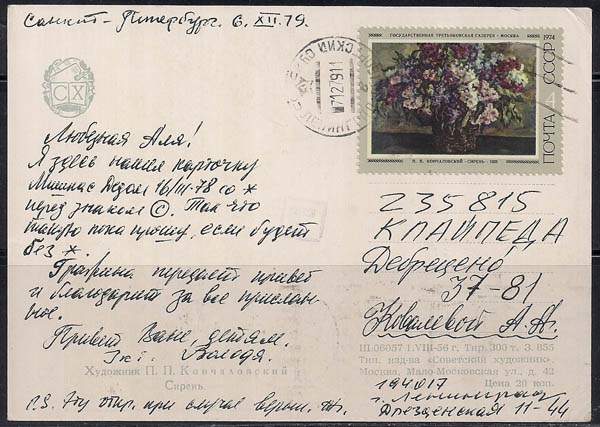 Санкт-Питербург. 6.XII.79.
ГОСУДАРСТВЕННАЯ ТРЕТЬЯКОВСКАЯ ГАЛЕРЕЯ • МОСКВА
1974
ПОЧТА СССР
4
П. П. КОНЧАЛОВСКИЙ • СИРЕНЬ • 1933
7127911
СХ
Любезная Аля!
Я здесь нашел карточку
16/III-78 со *
перед знаком ©. Так что
такую пока прошу, если будет
без *.
Гражина передает привет
и благодарит за все прислан-
ное.
Привет Ване, детям.
Володя.
P.S. Эту откр. при случае верни.
235815
КЛАЙПЕДА
Дебрецено
37-81
Ковалевой А.А.
Художник П. П. Кончаловский
Сирень
Ш-06057 1.VIII-56 г. Тир. 300 т. З. 855
Тип. изд-ва «Советский художник».
Москва, Мало-Московская ул., д. 42
Цена 20 коп.
194017
г. Ленинград
Дрезденская 11-44